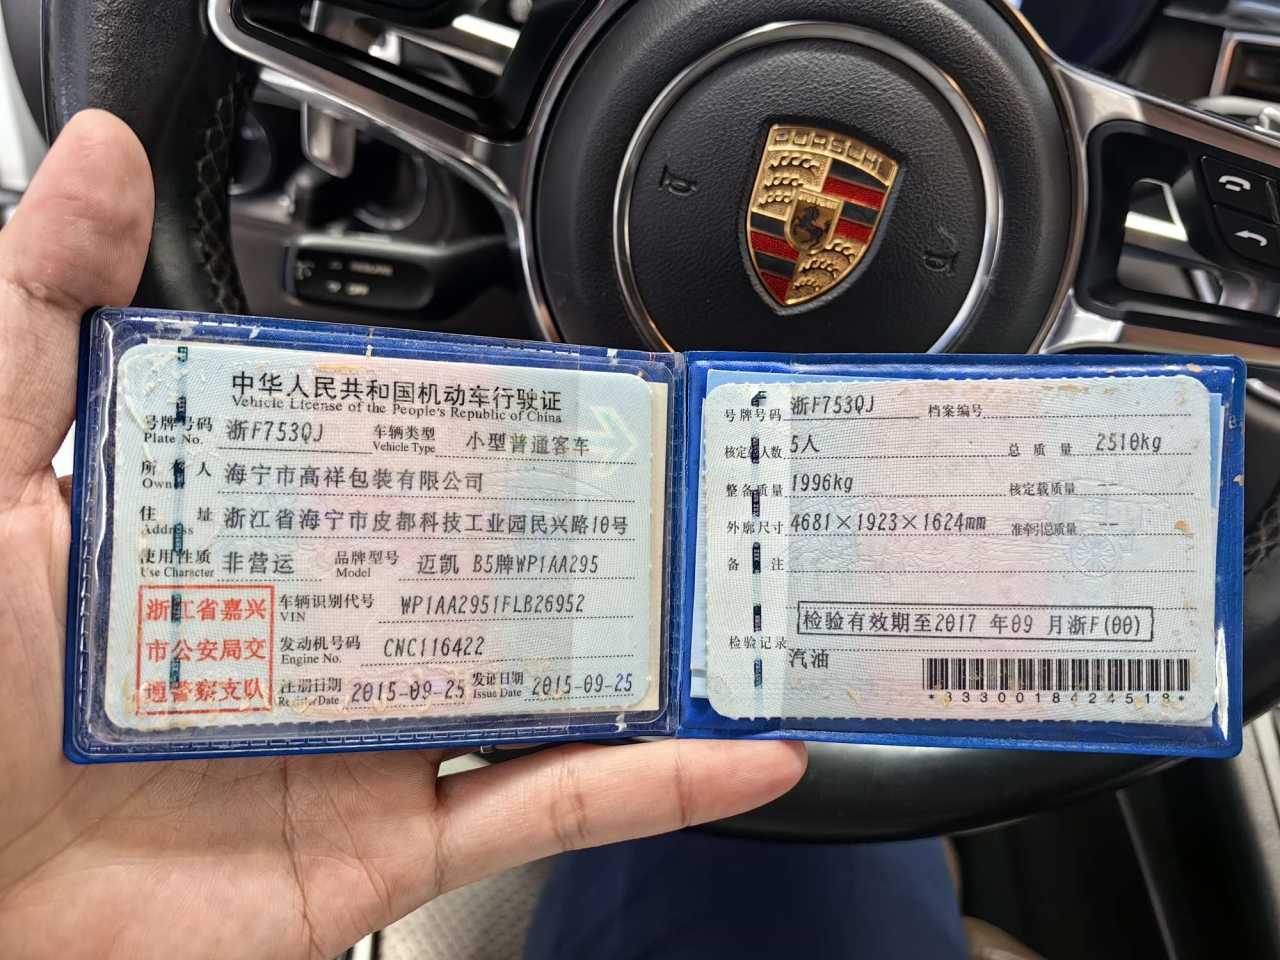 PORSCHE
中华人民共和国机动车行驶证
Vehicle License of the People's Republic of China
号牌号码 浙F753QJ 车辆类型 小型普通客车
Plate No. Vehicle Type
所有人 海宁市高祥包装有限公司
Owner
住址 浙江省海宁市皮都科技工业园民兴路10号
Address
使用性质 非营运 品牌型号 迈凯 B5牌WP1AA295
Use Character Model
浙江省嘉兴
市公安局交
通警察支队
车辆识别代号 WP1AA2951FLB26952
VIN
发动机号码 CNC116422
Engine No.
注册日期 2015-09-25 发证日期 2015-09-25
Register Date Issue Date
号牌号码 浙F753QJ 档案编号
核定载人数 5人 总质量 2510kg
整备质量 1996kg 核定载质量 --
外廓尺寸 4681×1923×1624mm 准牵引总质量 --
备注
检验有效期至2017 年09 月浙F(00)
检验记录
汽油
*3330018424518*